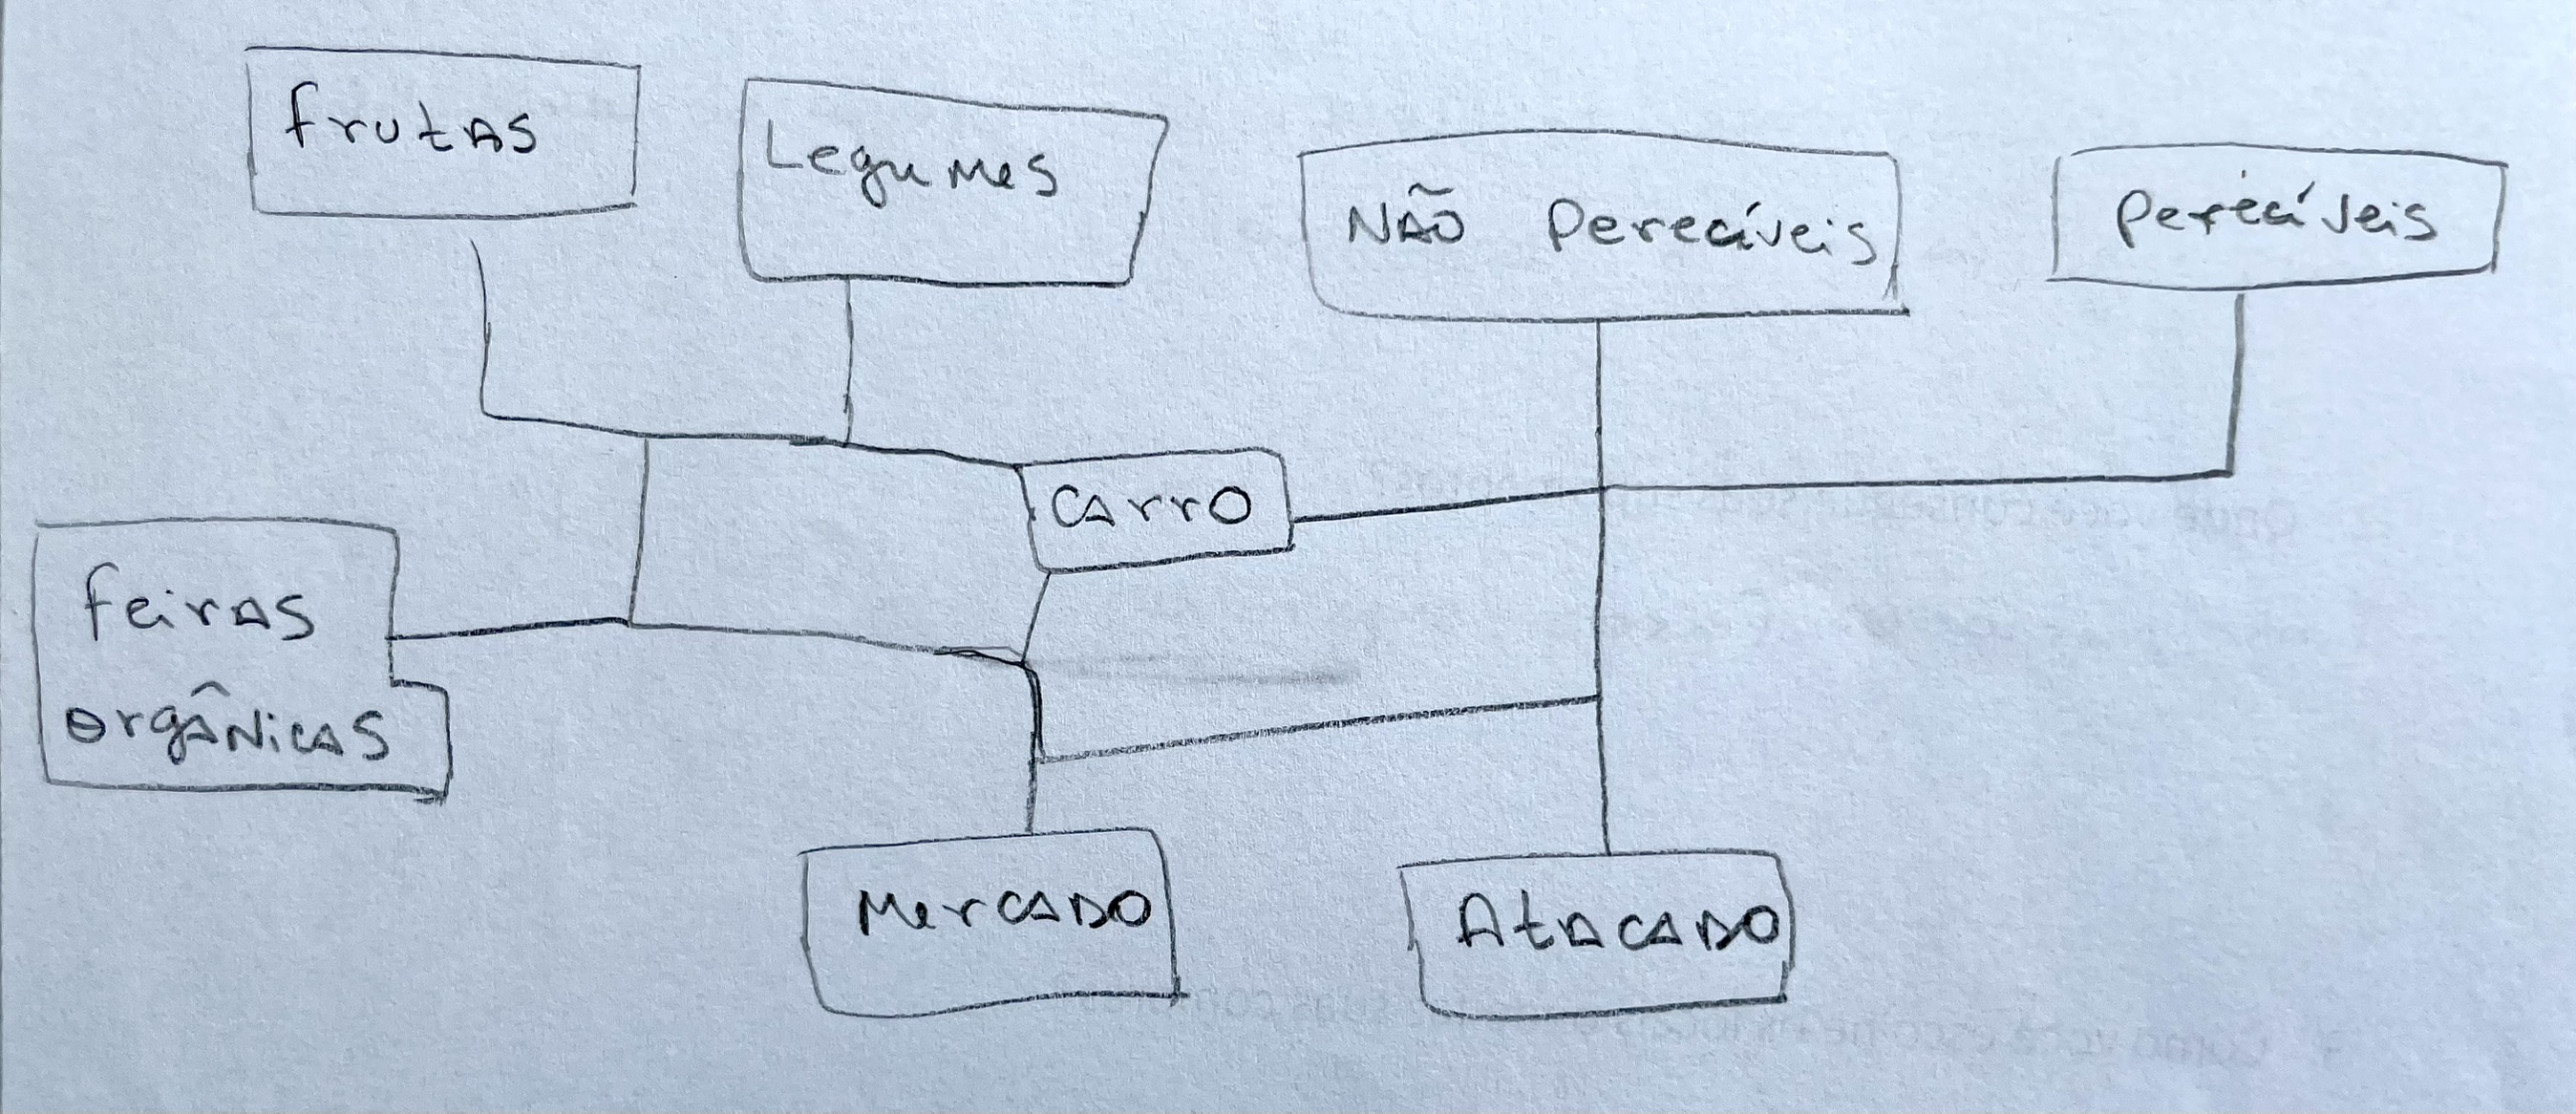 frutas
Legumes
NÃO Perecíveis
Perecíveis
carro
feiras
orgânicas
Mercado
Atacado